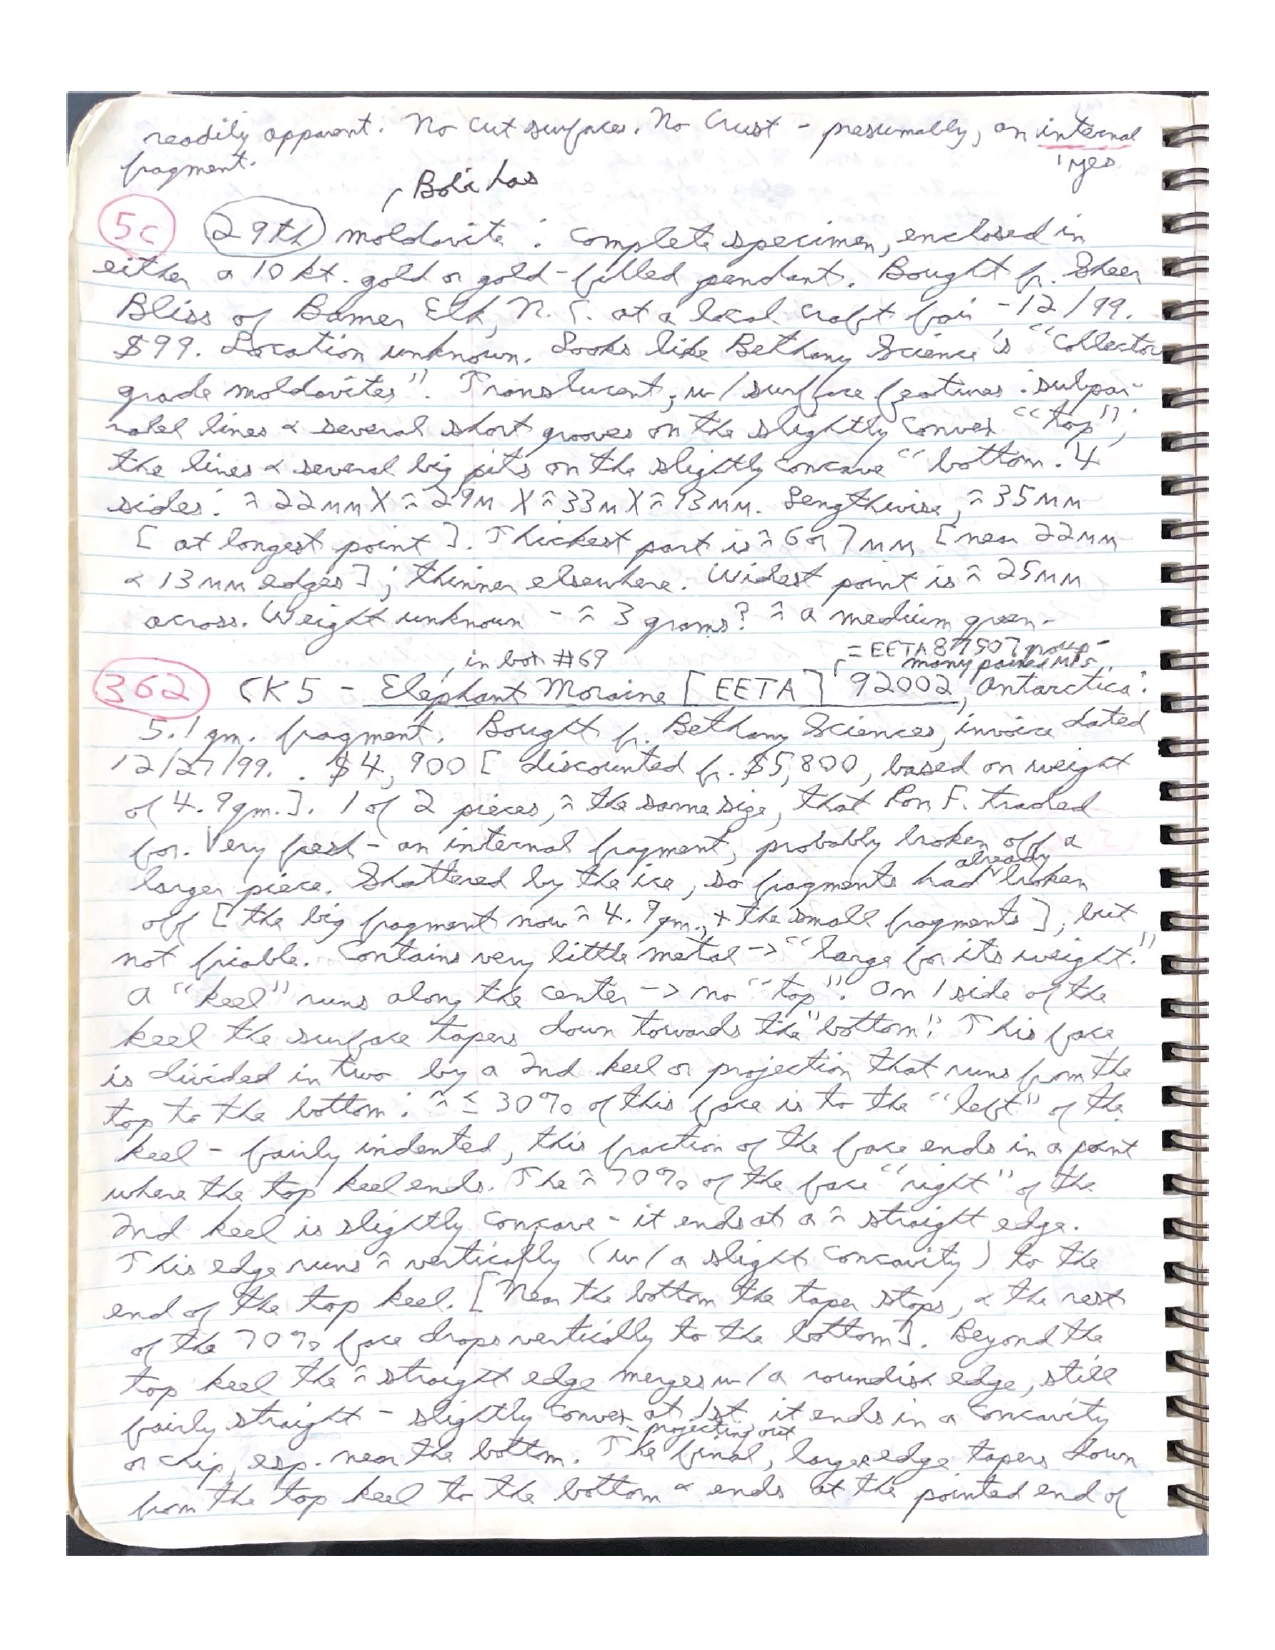 readily apparent. No cut surfaces. No Crust - presumably, an internal
fragment. yes
Bob has
5c 29th moldavite : complete specimen, enclosed in
either a 10 kt. gold or gold-filled pendant. Bought fr. Sheer
Bliss of Banner Elk, N. C. at a local craft fair - 12/99.
$99. Location unknown. Looks like Bethany Science's "Collector
grade moldavites". Translucent, w/ surface features : subpar-
ralel lines & several short grooves on the slightly convex "top";
the lines & several big pits on the slightly concave "bottom. 4
sides: ≈ 22mm X ≈ 29m X ≈ 33m X ≈ 13mm. Lengthwise, ≈ 35mm
[ at longest point ]. Thickest part is ≈ 6 or 7mm [near 22mm
& 13mm edges] ; thinner elsewhere. Widest point is ≈ 25mm
across. Weight unknown - ≈ 3 grams? ≈ a medium green.
in box #69 = EETA 87507 group -
many paired mets.
362 CK5 - Elephant Moraine [EETA] 92002, Antarctica :
5.1 gm. fragment. Bought fr. Bethany Sciences, invoice dated
12/27/99. . $4,900 [ discounted fr. $5,800, based on weight
of 4.9gm.]. 1 of 2 pieces, ≈ the same size, that Ron F. traded
for. Very fresh - an internal fragment, probably broken off a
already
larger piece. Shattered by the ice, so fragments had broken
off [ the big fragment now ≈ 4.9gm., + the small fragments ], but
not friable. Contains very little metal -> "large for its weight."
A "keel" runs along the center -> no "top". On 1 side of the
keel the surface tapers down towards the "bottom". This face
is divided in two by a 2nd keel or projection that runs from the
top to the bottom : ≈ ≤ 30% of this face is to the "left" of the
keel - fairly indented, this fraction of the face ends in a point
where the top keel ends. The ≈ 70% of the face "right" of the
2nd keel is slightly concave - it ends at a ≈ straight edge.
This edge runs ≈ vertically (w/ a slight concavity) to the
end of the top keel. [Near the bottom the taper stops, & the rest
of the 70% face drops vertically to the bottom]. Beyond the
top keel the ≈ straight edge merges w/ a roundish edge, still
fairly straight - slightly convex at 1st, it ends in a concavity
- projecting out
or chip, esp. near the bottom. The final, larger edge tapers down
from the top keel to the bottom & ends at the pointed end of